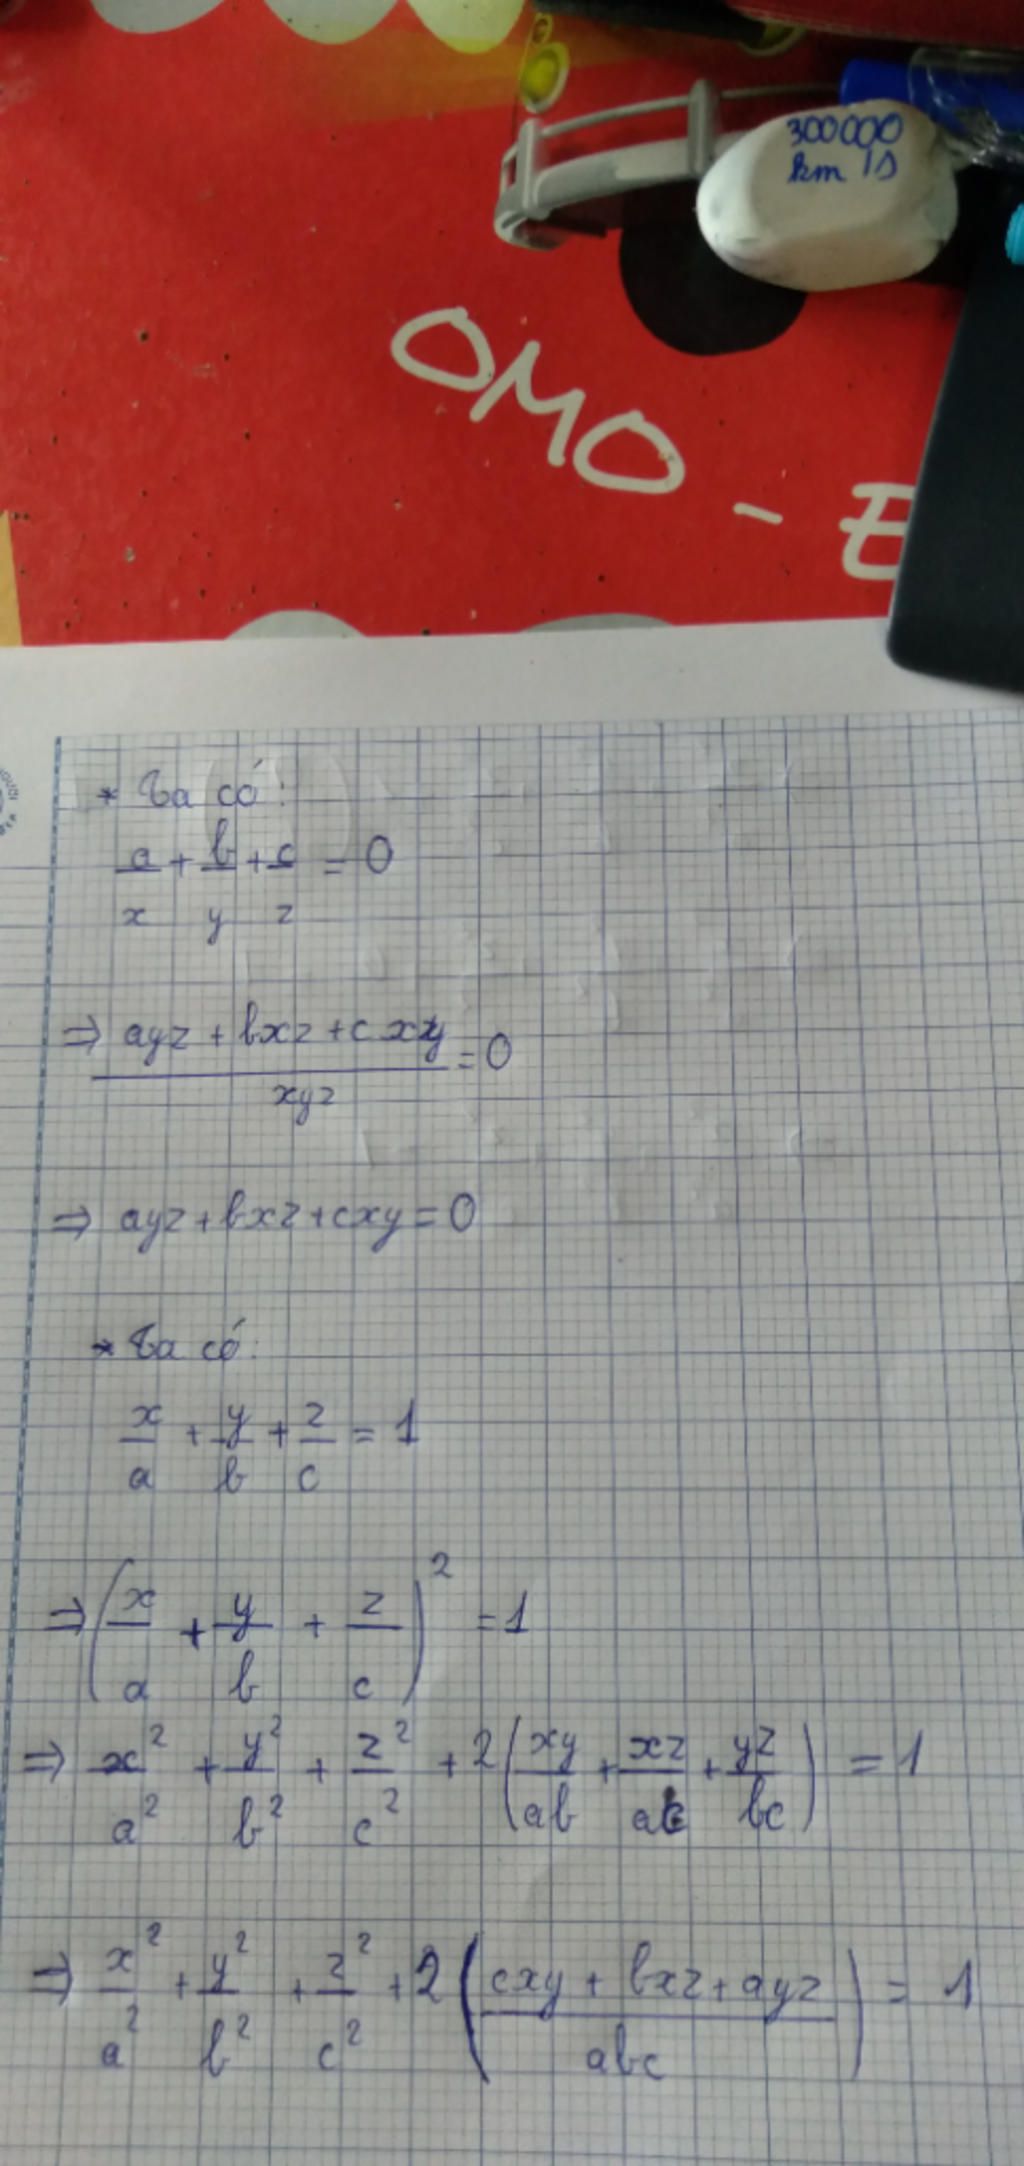 300000
km/s
OMO - E
* Ta có:
a/x + b/y + c/z = 0
⇒ (ayz + bxz + cxy)/xyz = 0
⇒ ayz + bxz + cxy = 0
* Ta có:
x/a + y/b + z/c = 1
⇒ (x/a + y/b + z/c)² = 1
⇒ x²/a² + y²/b² + z²/c² + 2(xy/ab + xz/ac + yz/bc) = 1
⇒ x²/a² + y²/b² + z²/c² + 2((cxy + bxz + ayz)/abc) = 1